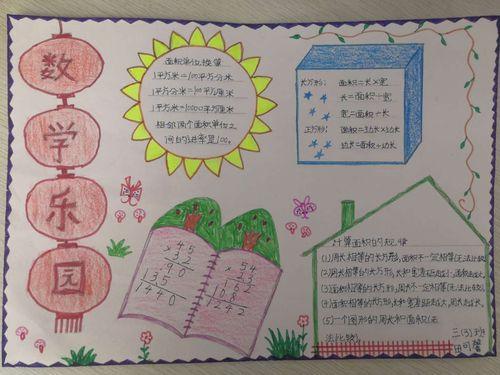 数学乐园
面积单位换算
1平方米=100平方分米
1平方分米=100平方厘米
1平方米=10000平方厘米
相邻两个面积单位之
间的进率是100。
长方形: 面积=长×宽
长=面积÷宽
宽=面积÷长
正方形: 面积=边长×边长
边长=面积÷边长
45
×32
90
135
1440
54
×23
162
108
1242
计算面积的规律
(1)周长相等的长方形,面积不一定相等(无法比较)
(2)周长相等的长方形,长和宽差距越小,面积越大。
(3)面积相等的长方形,周长不一定相等(无法比较)
(4)面积相等的长方形,长和宽差距越大,周长越长。
(5)一个图形的周长和面积(无
法比较)。
三(3)班
田可馨